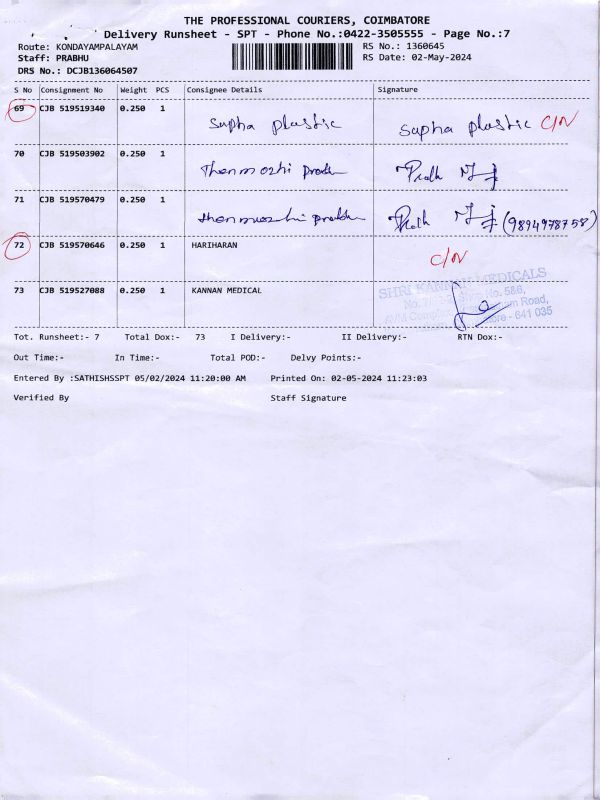 THE PROFESSIONAL COURIERS, COIMBATORE
Delivery Runsheet - SPT - Phone No.:0422-3505555 - Page No.:7
Route: KONDAYAMPALAYAM
RS No.: 1360645
Staff: PRABHU
RS Date: 02-May-2024
DRS No.: DCJB136064507
S No Consignment No Weight PCS Consignee Details Signature
69 CJB 519519340 0.250 1
Supha plastic Supha plastic C/N
70 CJB 519503902 0.250 1
Thenmozhi
71 CJB 519570479 0.250 1
(9894978758)
72 CJB 519570646 0.250 1 HARIHARAN
C/N
73 CJB 519527088 0.250 1 KANNAN MEDICAL
SHRI KANNAN MEDICALS
Road,
- 641 035
Tot. Runsheet:- 7 Total Dox:- 73 I Delivery:- II Delivery:- RTN Dox:-
Out Time:- In Time:- Total POD:- Delvy Points:-
Entered By :SATHISHSSPT 05/02/2024 11:20:00 AM Printed On: 02-05-2024 11:23:03
Verified By Staff Signature